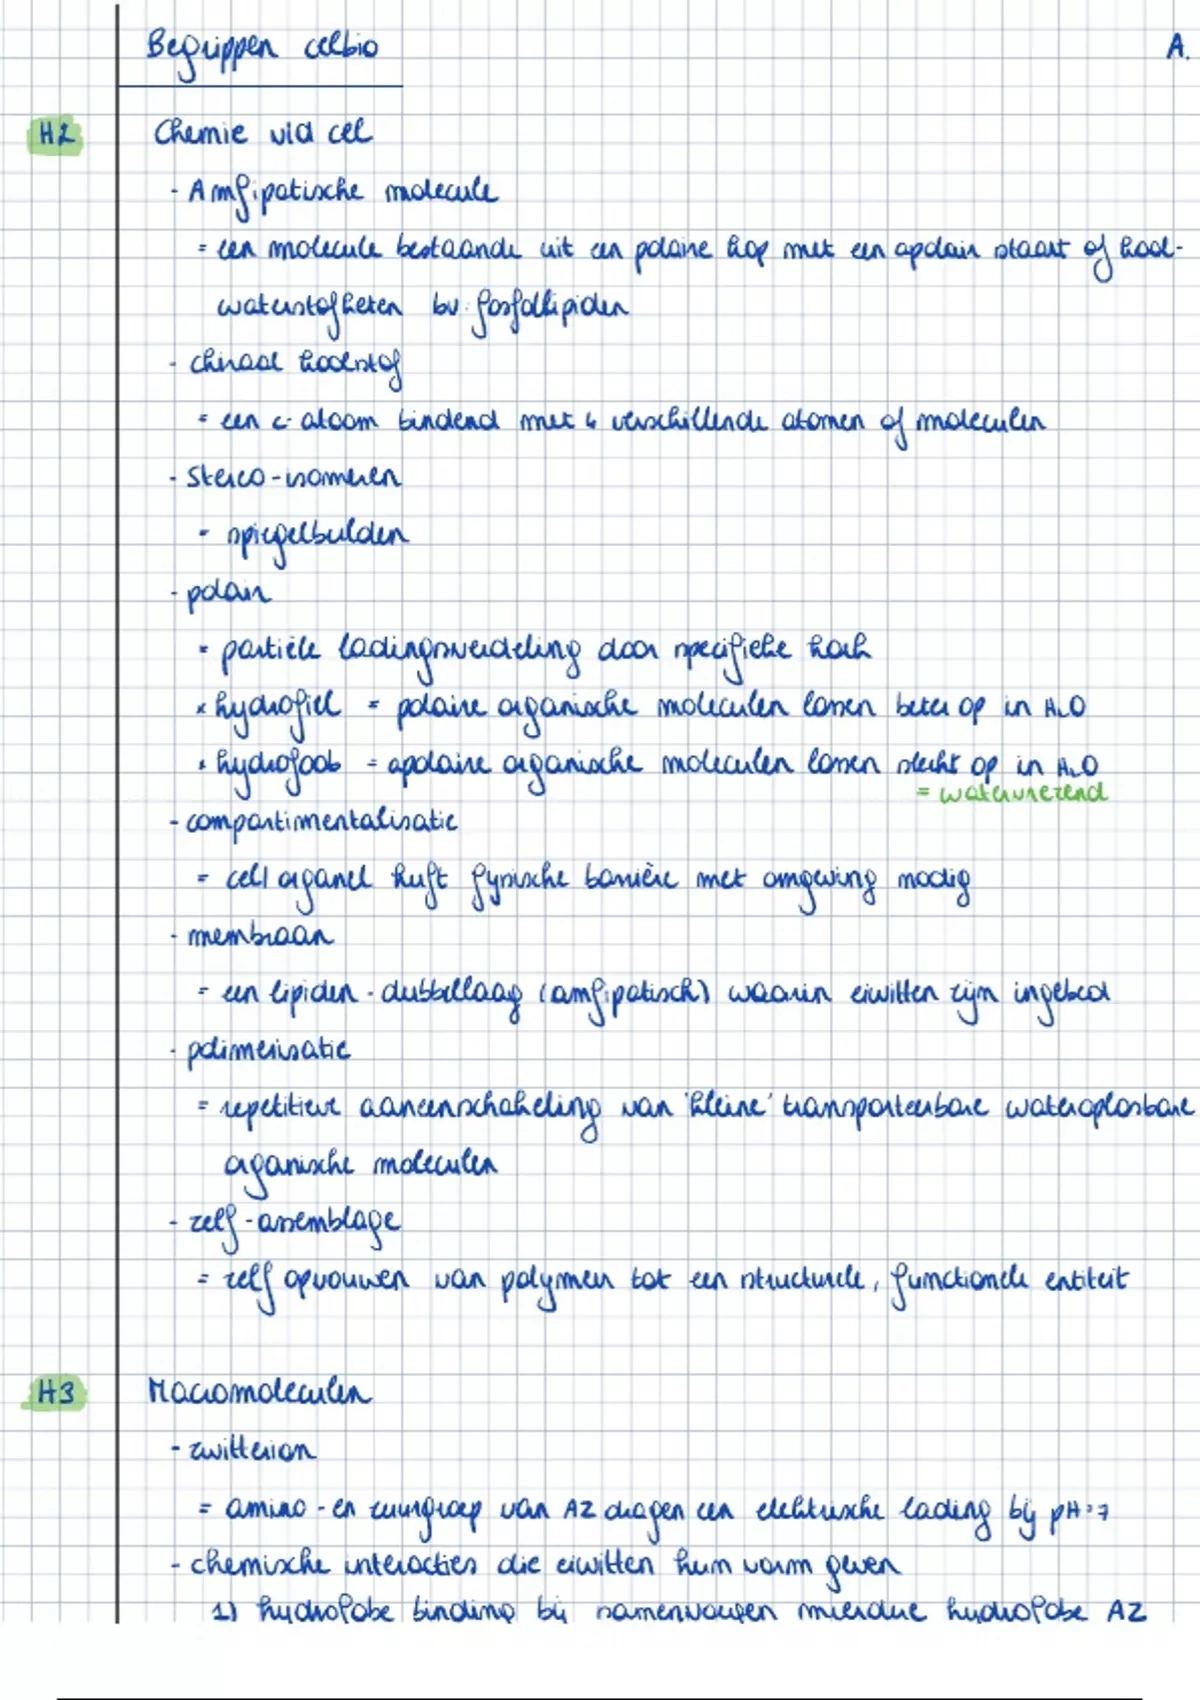 Begrippen celbio
A.
H2
Chemie v/d cel
- Amfipatische molecule
= een molecule bestaande uit een polaire kop met een apolair staart of kool-
waterstofketen bv. fosfollipiden
- chiraal koolstof
= een c-atoom bindend met 4 verschillende atomen of moleculen
- Stereo-isomeren
= spiegelbeelden
- polair
= partiële ladingsverdeling door specifieke hoek
x hydrofiel = polaire organische moleculen lossen beter op in H₂O
x hydrofoob = apolaire organische moleculen lossen slecht op in H₂O
= watervrezend
- compartimentalisatie
= cel/organel heeft fysische barrière met omgeving nodig
- membraan
= een lipiden-dubbellaag (amfipatisch) waarin eiwitten zijn ingebed
- polimerisatie
= repetitieve aaneenschakeling van 'kleine' transporteerbare wateroplosbare
organische moleculen
- zelf-assemblage
= zelf opvouwen van polymeer tot een structurele, functionele entiteit
H3
Macromoleculen
- zwitterion
= amino-en zuurgroep van AZ dragen een elektrische lading bij pH=7
- chemische interacties die eiwitten hun vorm geven
1) hydrofobe binding bij samenvoegen meerdere hydrofobe AZ